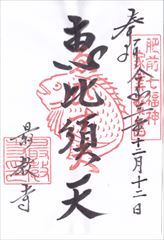 奉拝 令和二年十二月十二日
肥前七福神
恵比須天
最教寺